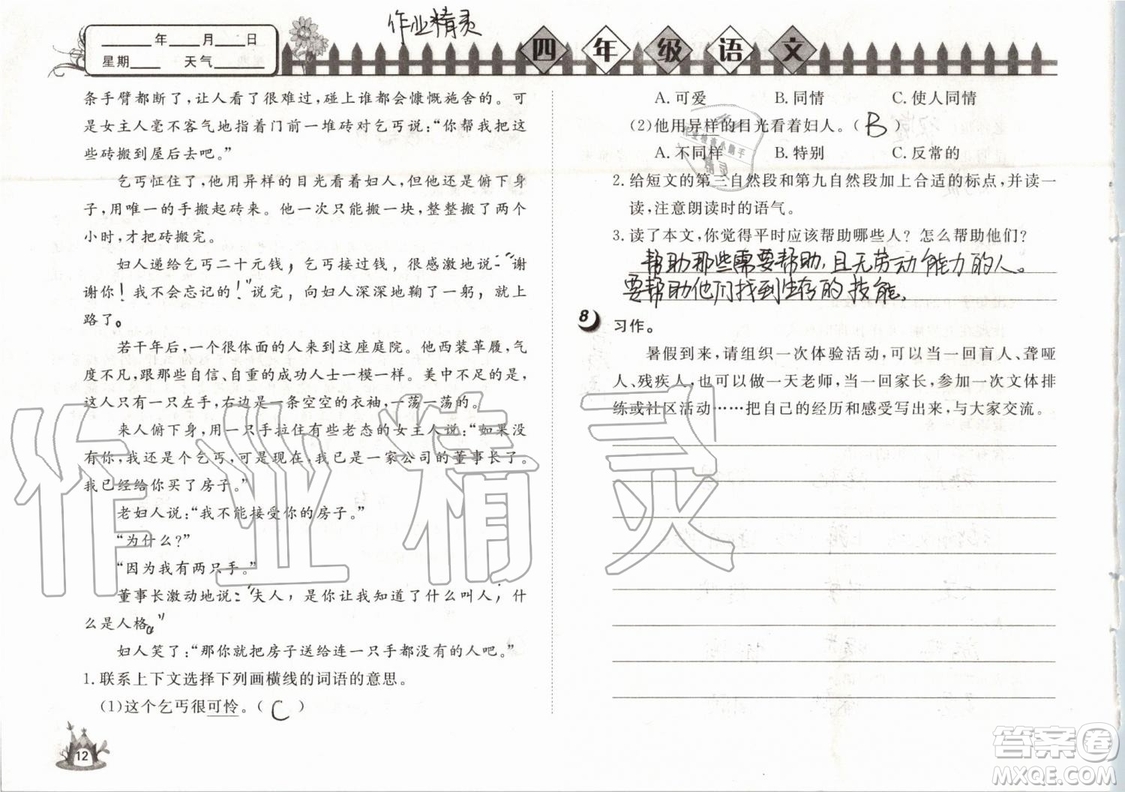 作业精灵
____年____月____日
星期____ 天气______
四年级语文
条手臂都断了，让人看了很难过，碰上谁都会慷慨施舍的。可
是女主人毫不客气地指着门前一堆砖对乞丐说：“你帮我把这
些砖搬到屋后去吧。”
乞丐怔住了，他用异样的目光看着妇人，但他还是俯下身
子，用唯一的手搬起砖来。他一次只能搬一块，整整搬了两个
小时，才把砖搬完。
妇人递给乞丐二十元钱，乞丐接过钱，很感激地说：“谢
谢你！我不会忘记的！”说完，向妇人深深地鞠了一躬，就上
路了。
若干年后，一个很体面的人来到这座庭院。他西装革履，气
度不凡，跟那些自信、自重的成功人士一模一样。美中不足的是，
这人只有一只左手，右边是一条空空的衣袖，一荡一荡的。
来人俯下身，用一只手拉住有些老态的女主人说：“如果没
有你，我还是个乞丐，可是现在，我已是一家公司的董事长了。
我已经给你买了房子。”
老妇人说：“我不能接受你的房子。”
“为什么？”
“因为我有两只手。”
董事长激动地说：“夫人，是你让我知道了什么叫人，什
么是人格。”
妇人笑了：“那你就把房子送给连一只手都没有的人吧。”
1.联系上下文选择下列画横线的词语的意思。
(1)这个乞丐很可怜。（ C ）
12
A.可爱 B.同情 C.使人同情
(2)他用异样的目光看着妇人。（ B ）
A.不同样 B.特别 C.反常的
2.给短文的第三自然段和第九自然段加上合适的标点，并读一
读，注意朗读时的语气。
3.读了本文，你觉得平时应该帮助哪些人？怎么帮助他们？
帮助那些需要帮助，且无劳动能力的人。
要帮助他们找到生存的技能。
8 习作。
暑假到来，请组织一次体验活动，可以当一回盲人、聋哑
人、残疾人，也可以做一天老师，当一回家长，参加一次文体排
练或社区活动……把自己的经历和感受写出来，与大家交流。
作业精灵
答案卷
MXQE.COM